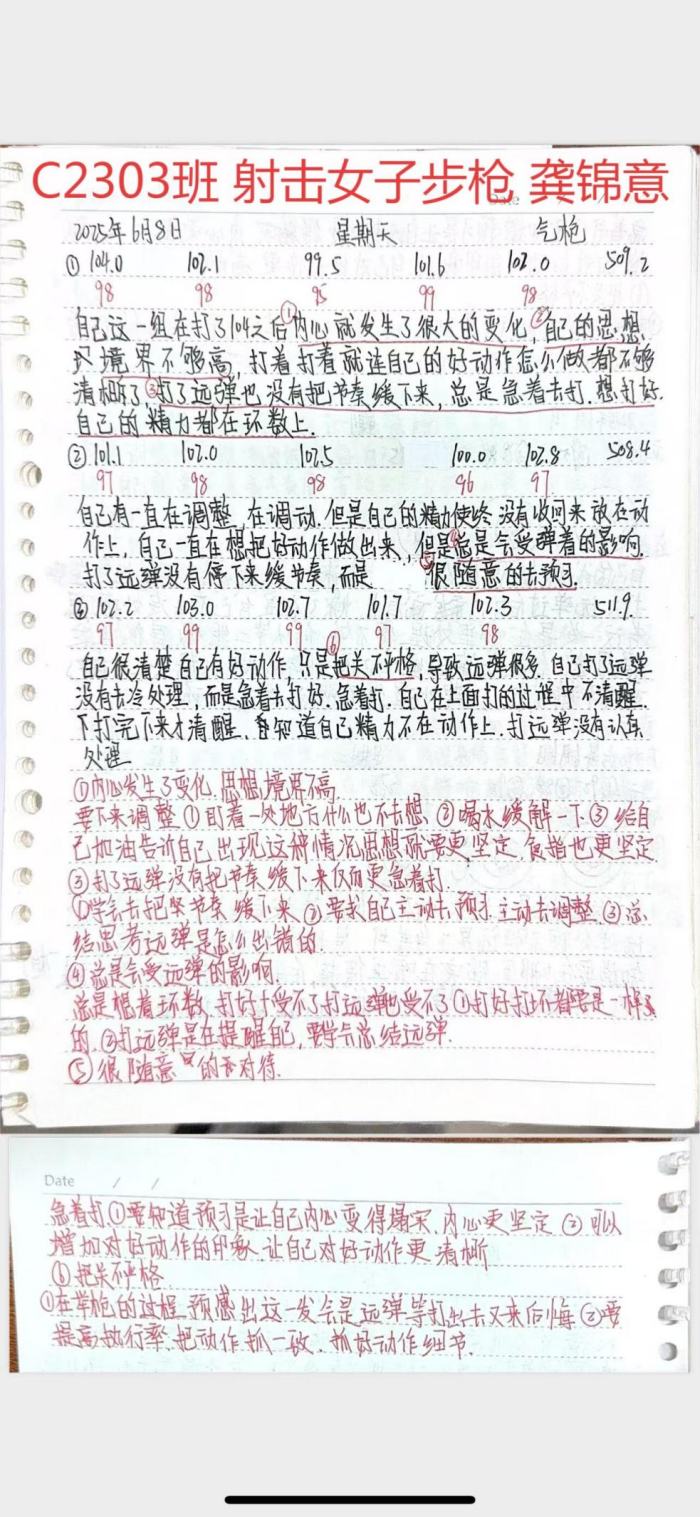 C2303班 射击女子步枪 龚锦意
2025年6月8日 星期天 气枪
① 104.0 102.1 99.5 101.6 102.0 509.2
98 98 95 99 98
自己这一组在打了104之后①内心就发生了很大的变化,②自己的思想
境界不够高,打着打着就连自己的好动作怎么做都不够
清晰了,③打了远弹也没有把节奏缓下来,总是急着去打.想打好.
自己的精力都在环数上.
② 101.1 102.0 102.5 100.0 102.8 508.4
97 98 98 96 97
自己有一直在调整,在调动.但是自己的精力使终没有收回来放在动
作上,自己一直在想把好动作做出来,但是④总是会受弹着的影响.
打了远弹没有停下来缓节奏,而是⑤很随意的去预习.
③ 102.2 103.0 102.7 101.7 102.3 511.9
97 99 99 97 98
自己很清楚自己有好动作,只是⑥把关不严格,导致远弹很多.自己打了远弹
没有去冷处理,而是急着去打好.急着打.自己在上面打的过程中不清醒.
下打完下来才清醒,知道自己精力不在动作上.打远弹没有认真
处理
①内心发生了变化,思想境界不高.
要下来调整①盯着一处地方什么也不去想.②喝水缓解一下.③给自
己加油告诉自己出现这种情况思想就要更坚定.食指也更坚定.
③打了远弹没有把节奏缓下来反而更急着打.
①学会去把节奏缓下来②要求自己主动去预习.主动去调整.③总
结思考远弹是怎么出错的.
④总是会受远弹的影响.
总是想着环数,打好了受不了打远弹也受不了①打好打坏都要是一样
的.②打远弹是在提醒自己,要学会总结远弹.
⑤很随意的去对待.
Date / /
急着打.①要知道预习是让自己内心变得踏实.内心更坚定②可以
增加对好动作的印象.让自己对好动作更清晰
⑥把关不严格
①在举枪的过程预感出这一发会是远弹等打出去又来后悔②要
提高执行率.把动作抓一致.抓好动作细节.